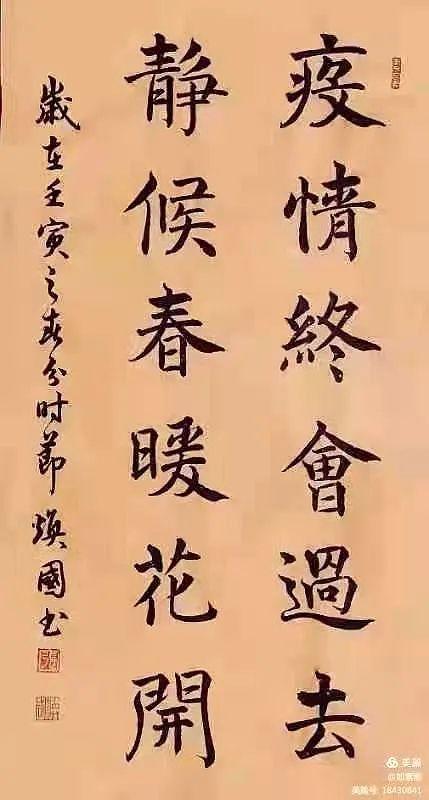 疫情終會過去
静候春暖花開
歲在壬寅之春分时節焕國书
美篇
美篇号 18430841